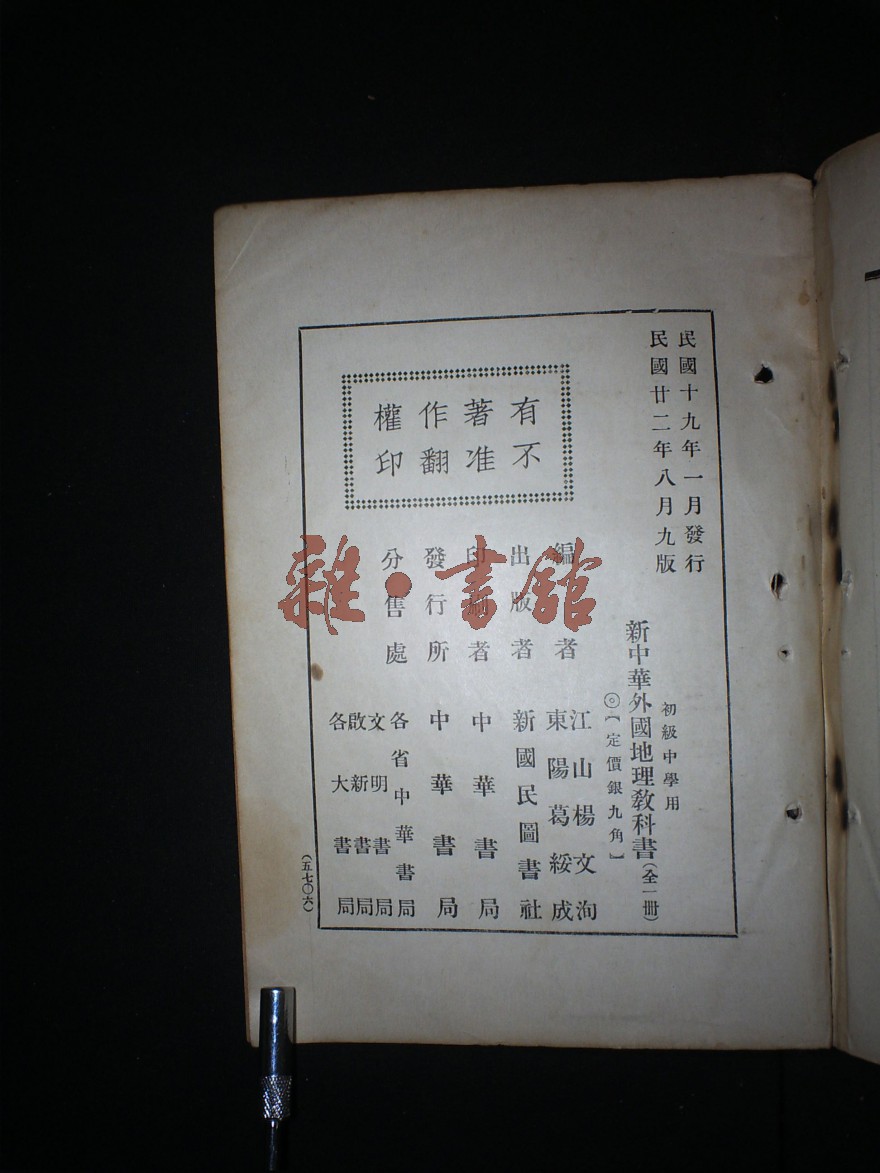 民國十九年一月發行
民國廿二年八月九版
初級中學用
新中華外國地理教科書(全一冊)
◎【定價銀九角】
有著作權
不准翻印
編者 江山楊文洵
東陽葛綏成
出版者 新國民圖書社
印刷者 中華書局
發行所 中華書局
分售處 各省中華書局
文明書局
啟新書局
各大書局
(五七〇六)
雜·書館